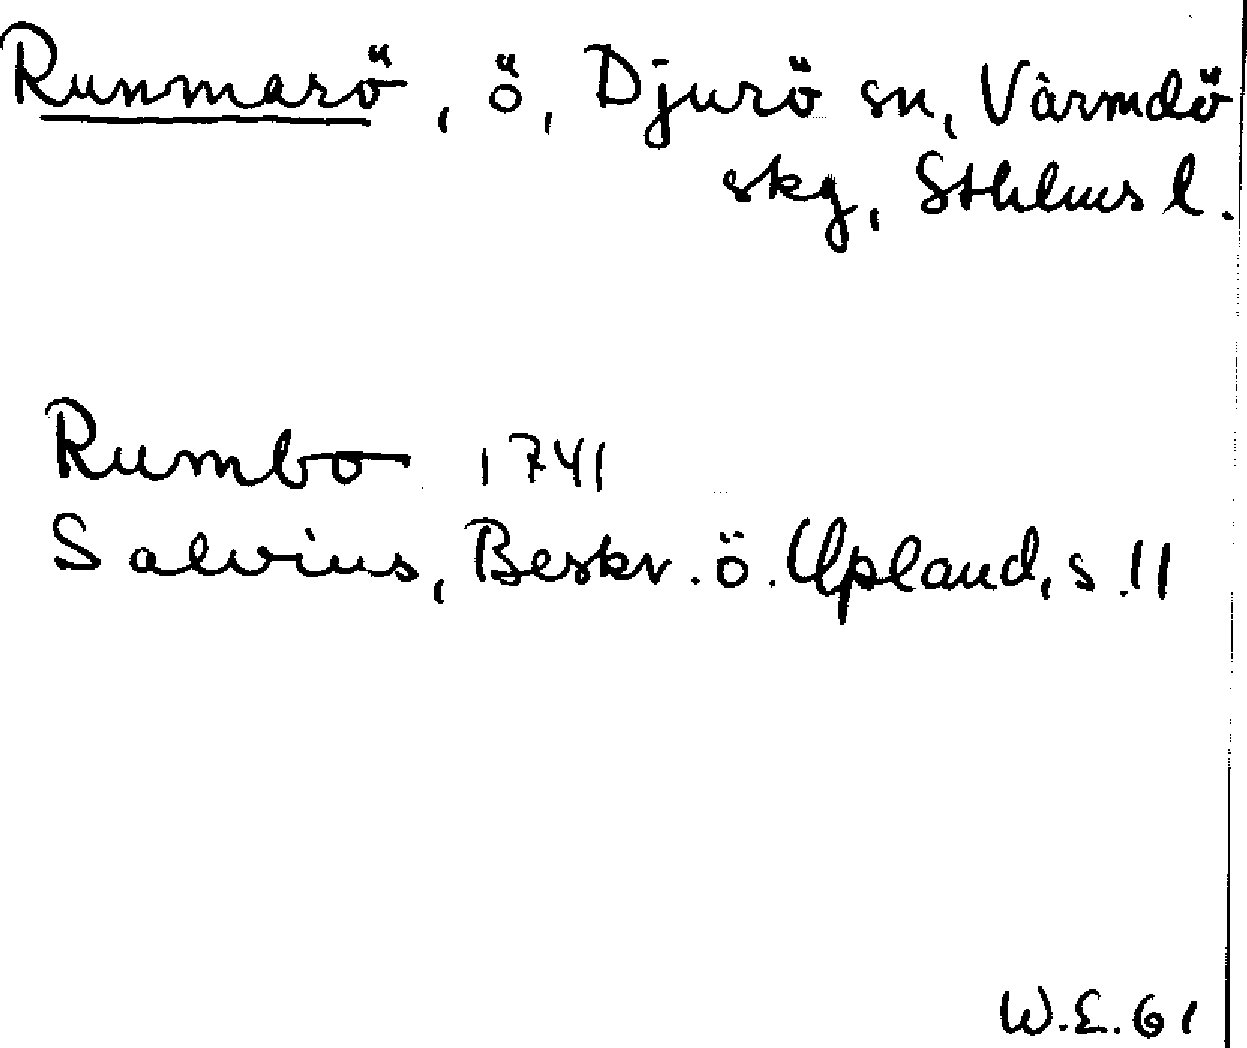 Runmarö, ö, Djurö sn, Värmdö
skg, Sthlms l.
Rumbo 1741
Salvius, Beskr. ö. Upland, s. 11
W.E. 61